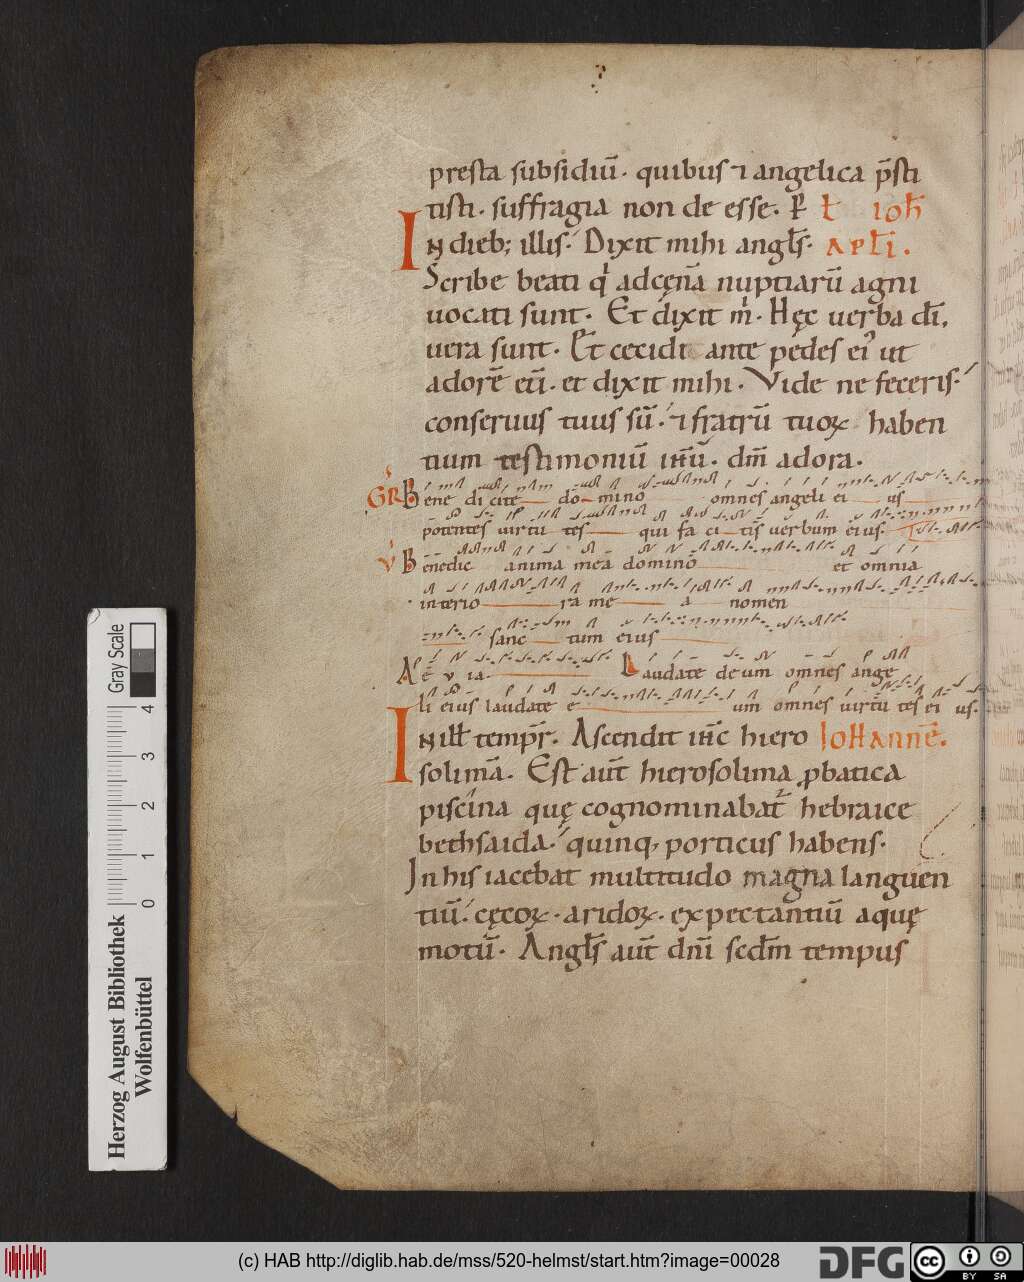 presta subsidiū. quibus ⁊ angelica p̄sti
tisti. suffragia non de esse. P̱ ł ioh̄
In dieb; illis. Dixit mihi angl̄s. aptī.
Scribe beati q́ adcęn̄a nuptiarū agni
uocati sunt. Et dixit m̍. Hęc uerba dī,
uera sunt. Et cecidi ante pedes ei᾽ ut
adorē eū. et dixit mihi. Vide ne feceris.
conseruus tuus sū. ⁊ fratrū tuoꝝ haben
tium testimoniū ih̄u. dm̄ adora.
GR Bene di cite do mino omnes angeli ei us
potentes uirtu tes qui fa ci tis uerbum eius.
V Benedic anima mea domino et omnia
interio ra me a nomen
sanc tum eius
A e u ia. Laudate deum omnes ange
li eius laudate e um omnes uirtu tes ei us.
In ill̄ tempr̄. Ascendit ih̄c hiero Iohannē.
solima. Est aūt hierosolima ꝓbatica
piscina quę cognominabat̄ hebraice
bethsaida. quinq, porticus habens.
In his iacebat multitudo magna languen
tiū. cęcoꝝ. aridoꝝ. expectantiū aquę
motū. Angl̄s aūt dn̄i scd̄m tempus
Gray Scale
4
3
2
1
0
Herzog August Bibliothek
Wolfenbüttel
(c) HAB http://diglib.hab.de/mss/520-helmst/start.htm?image=00028
DFG
cc
BY SA